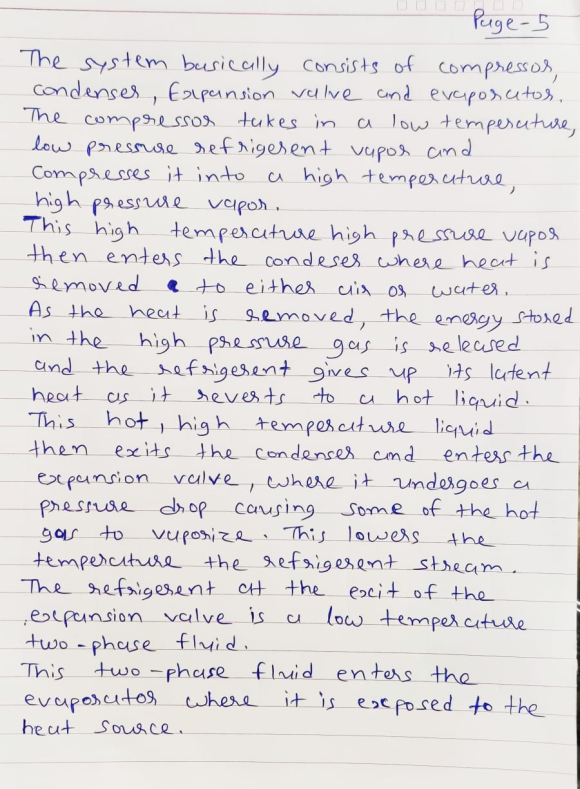 Page-5
The system basically consists of compressor,
condenser, Expansion valve and evaporator.
The compressor takes in a low temperature,
low pressure refrigerent vapor and
Compresses it into a high temperature,
high pressure vapor.
This high temperature high pressure vapor
then enters the condeser where heat is
removed to either air or water.
As the heat is removed, the energy stored
in the high pressure gas is released
and the refrigerent gives up its latent
heat as it reverts to a hot liquid.
This hot, high temperature liquid
then exits the condenser and enters the
expansion valve, where it undergoes a
pressure drop causing some of the hot
gas to vaporize. This lowers the
temperature the refrigerent stream.
The refrigerent at the exit of the
expansion valve is a low temperature
two-phase fluid.
This two-phase fluid enters the
evaporator where it is exposed to the
heat source.